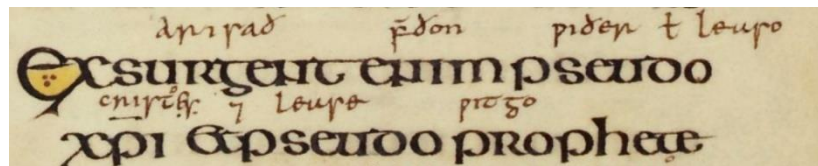 arisað f̄ðon ƿiðer ł leaso
Exsurgent enim pseudo
7 lease ƿitgo
xp̄i et pseudo prophetae